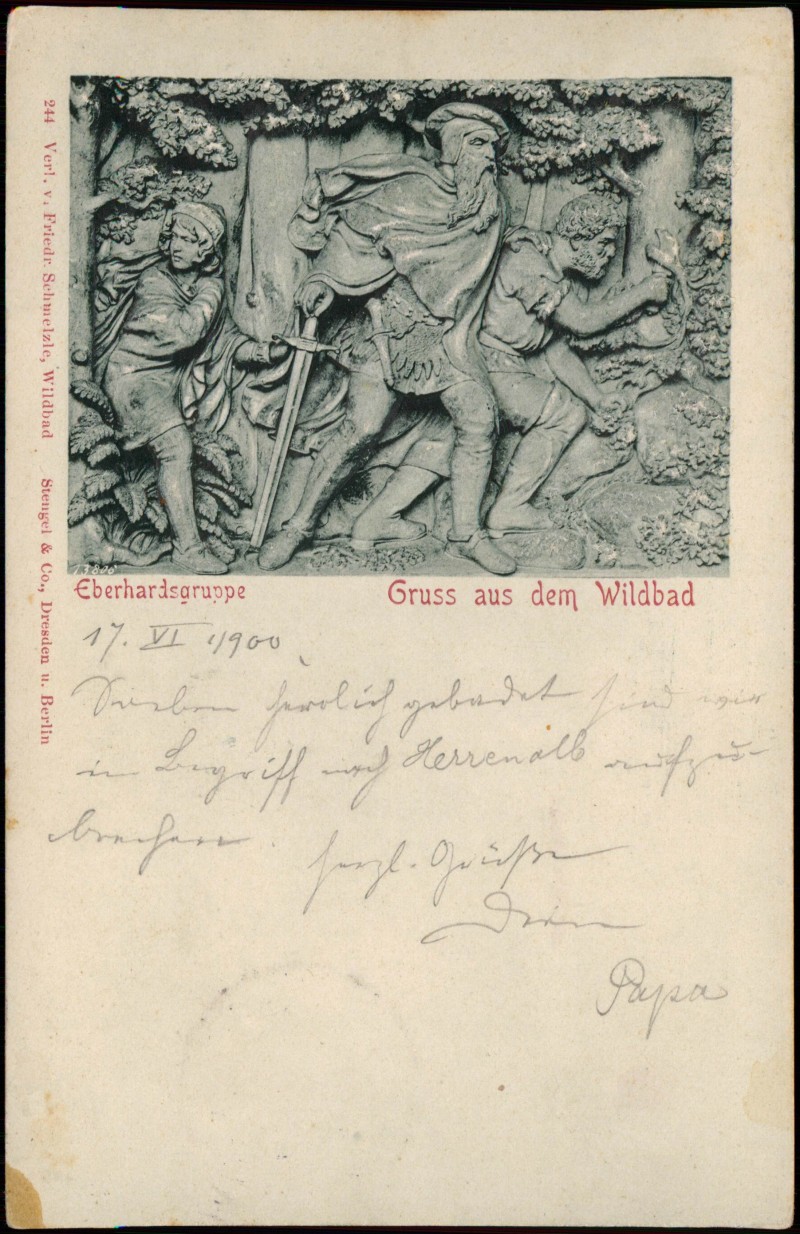 244 Verl. v. Friedr. Schmelzle, Wildbad Stengel & Co., Dresden u. Berlin
Eberhardsgruppe
Gruss aus dem Wildbad
17. VI 1900
Soeben herrlich gebadet sind wir
im Begriff nach Herrenalb aufzu-
brechen.
herzl. Grüße
Dein
Papa